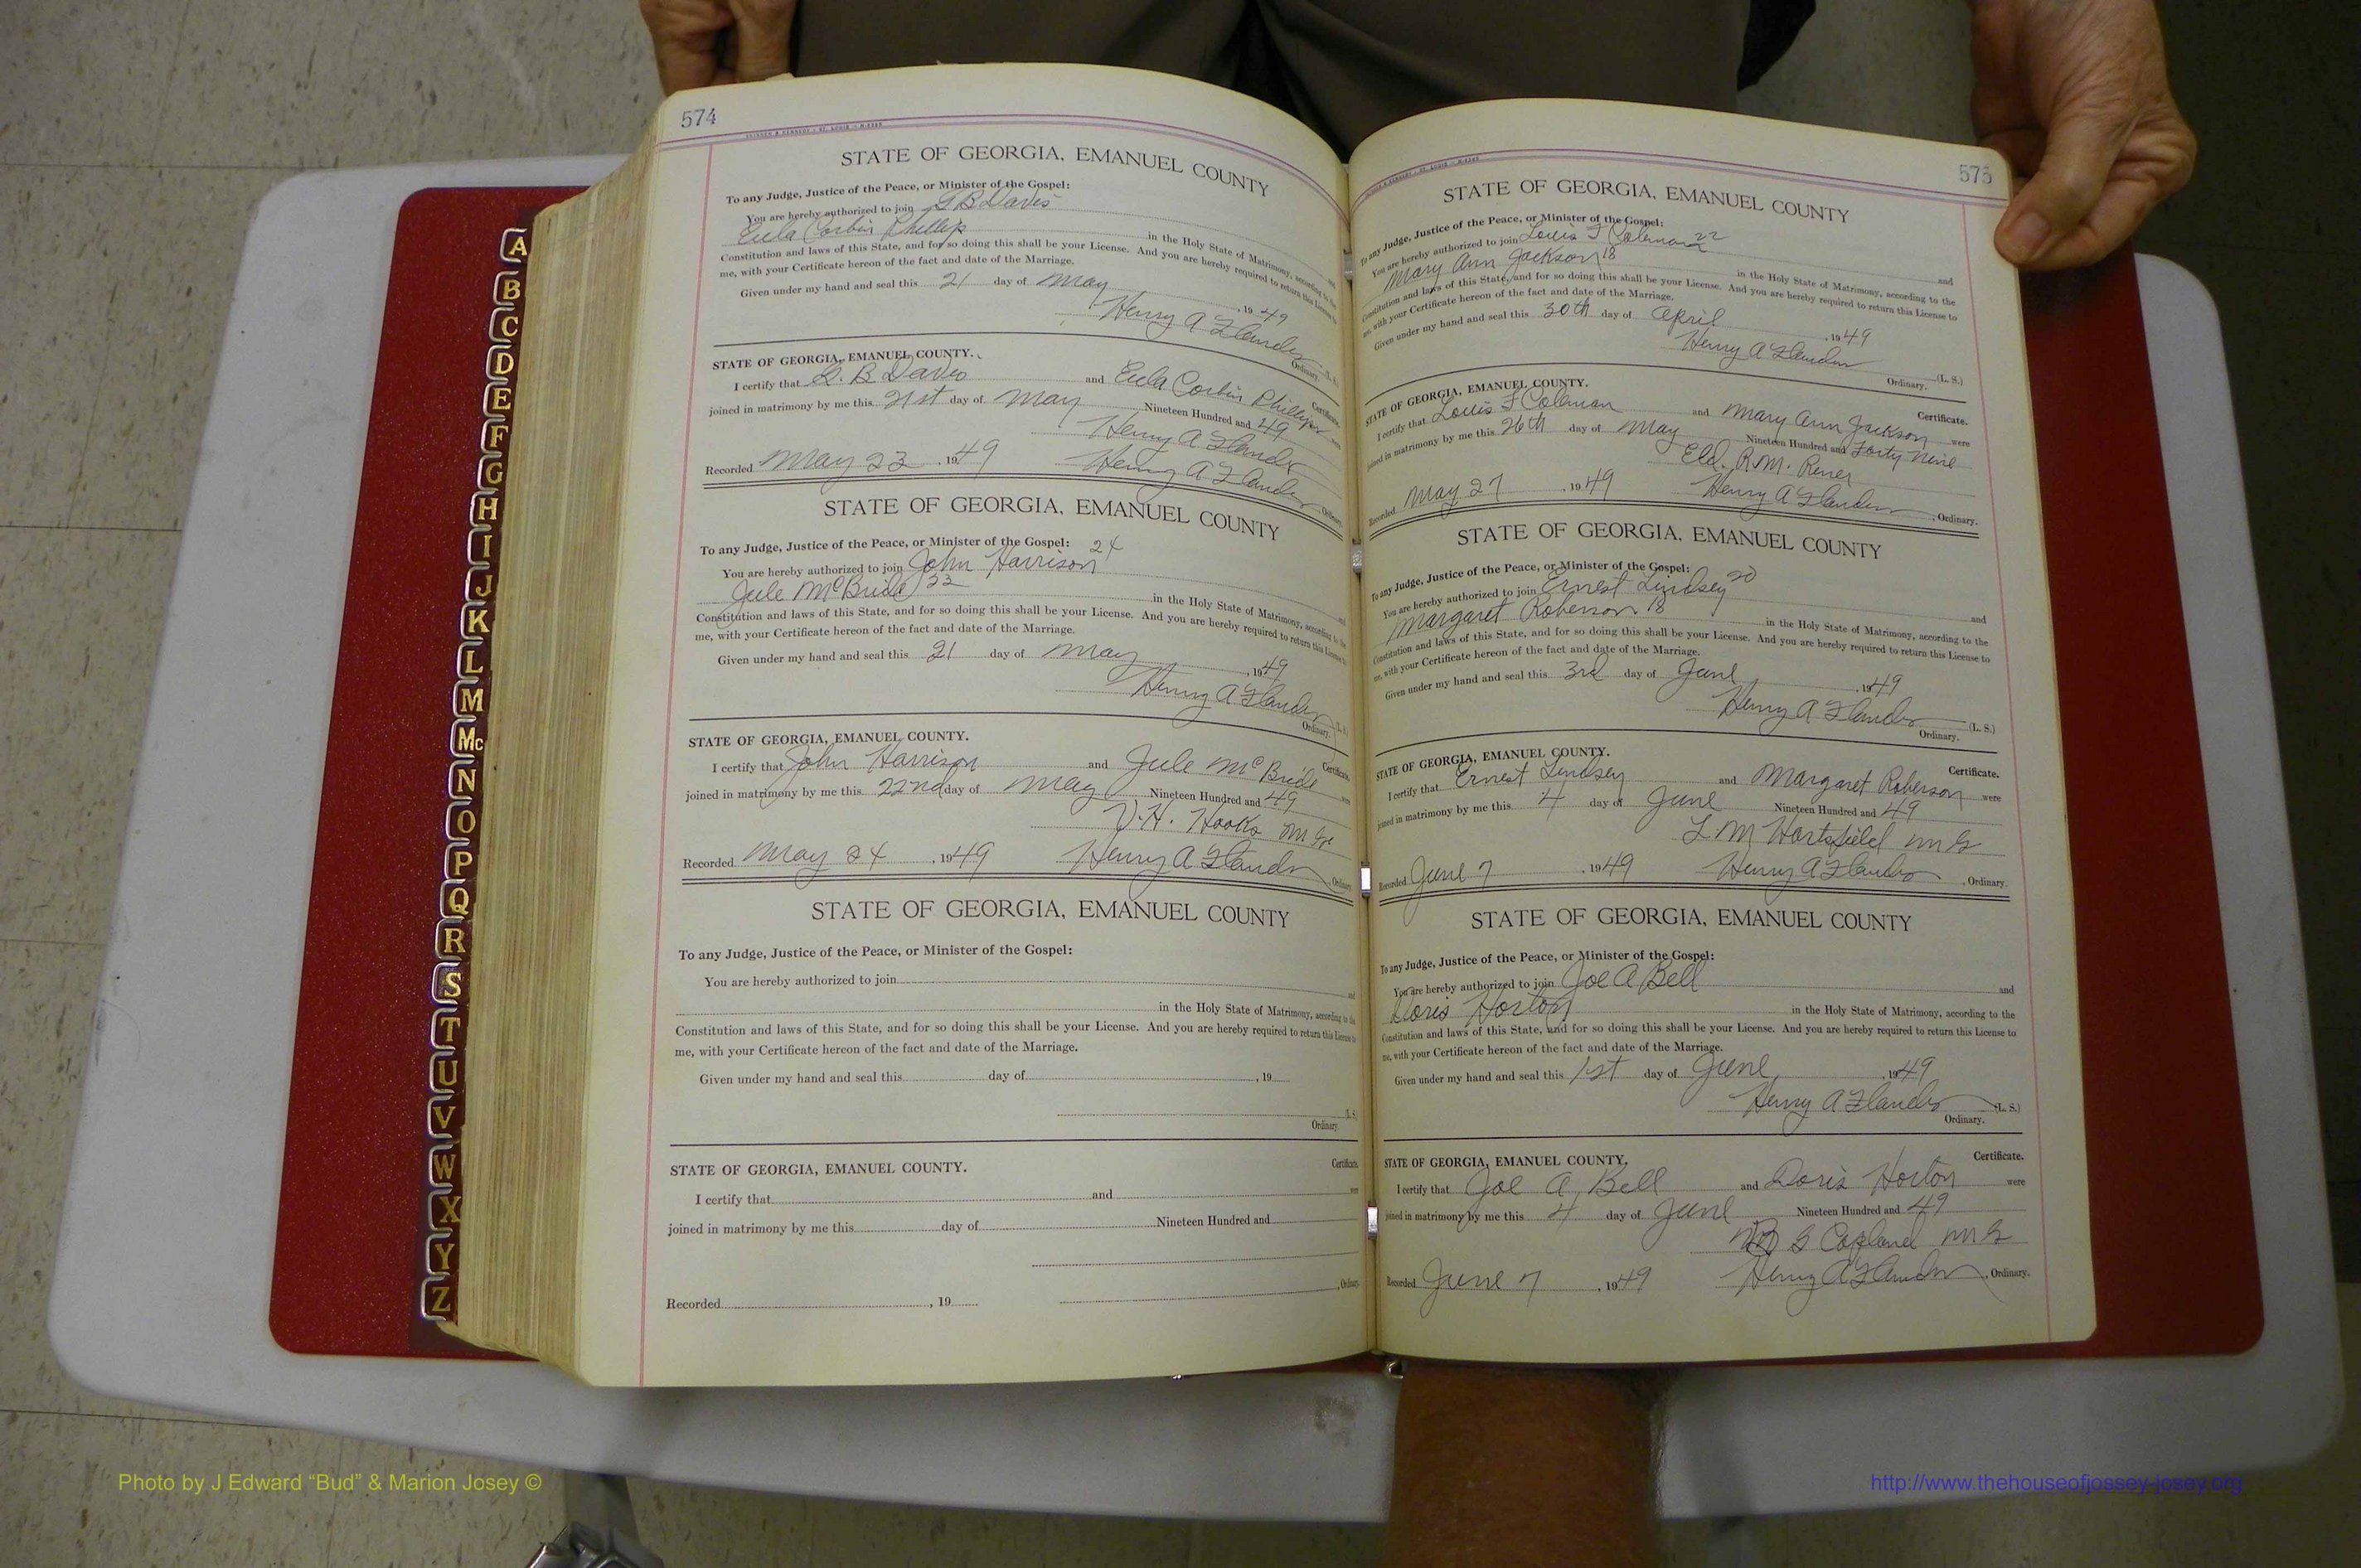 574
STATE OF GEORGIA, EMANUEL COUNTY
To any Judge, Justice of the Peace, or Minister of the Gospel:
You are hereby authorized to join G B Davis
Eula Corbin Phillips in the Holy State of Matrimony, according to the
Constitution and laws of this State, and for so doing this shall be your License. And you are hereby required to return this License to
me, with your Certificate hereon of the fact and date of the Marriage.
Given under my hand and seal this 21 day of May, 1949
Henry A Flanders (L. S.)
Ordinary.
STATE OF GEORGIA, EMANUEL COUNTY. Certificate.
I certify that G. B Davis and Eula Corbin Phillips were
joined in matrimony by me this 21st day of May Nineteen Hundred and 49
Henry A Flanders
Recorded May 23, 1949 Henry A Flanders, Ordinary.
STATE OF GEORGIA, EMANUEL COUNTY
To any Judge, Justice of the Peace, or Minister of the Gospel:
You are hereby authorized to join John Harrison 24 and
Jule McBride 22 in the Holy State of Matrimony, according to the
Constitution and laws of this State, and for so doing this shall be your License. And you are hereby required to return this License to
me, with your Certificate hereon of the fact and date of the Marriage.
Given under my hand and seal this 21 day of May, 1949
Henry A Flanders (L. S.)
Ordinary.
STATE OF GEORGIA, EMANUEL COUNTY. Certificate.
I certify that John Harrison and Jule McBride were
joined in matrimony by me this 22nd day of May Nineteen Hundred and 49
V. H. Hooks M G
Recorded May 24, 1949 Henry A Flanders, Ordinary.
STATE OF GEORGIA, EMANUEL COUNTY
To any Judge, Justice of the Peace, or Minister of the Gospel:
You are hereby authorized to join and
in the Holy State of Matrimony, according to the
Constitution and laws of this State, and for so doing this shall be your License. And you are hereby required to return this License to
me, with your Certificate hereon of the fact and date of the Marriage.
Given under my hand and seal this day of , 19
(L. S.)
Ordinary.
STATE OF GEORGIA, EMANUEL COUNTY. Certificate.
I certify that and were
joined in matrimony by me this day of Nineteen Hundred and
Recorded , 19 , Ordinary.
575
STATE OF GEORGIA, EMANUEL COUNTY
To any Judge, Justice of the Peace, or Minister of the Gospel:
You are hereby authorized to join Louis F Coleman 22 and
Mary Ann Jackson 18 in the Holy State of Matrimony, according to the
Constitution and laws of this State, and for so doing this shall be your License. And you are hereby required to return this License to
me, with your Certificate hereon of the fact and date of the Marriage.
Given under my hand and seal this 30th day of April, 1949
Henry A Flanders (L. S.)
Ordinary.
STATE OF GEORGIA, EMANUEL COUNTY. Certificate.
I certify that Louis F Coleman and Mary Ann Jackson were
joined in matrimony by me this 26th day of May Nineteen Hundred and Forty Nine
Eld. R. M.
Recorded May 27, 1949 Henry A Flanders, Ordinary.
STATE OF GEORGIA, EMANUEL COUNTY
To any Judge, Justice of the Peace, or Minister of the Gospel:
You are hereby authorized to join Ernest Lindsey 20 and
Margaret Roberson 18 in the Holy State of Matrimony, according to the
Constitution and laws of this State, and for so doing this shall be your License. And you are hereby required to return this License to
me, with your Certificate hereon of the fact and date of the Marriage.
Given under my hand and seal this 3rd day of June, 1949
Henry A Flanders (L. S.)
Ordinary.
STATE OF GEORGIA, EMANUEL COUNTY. Certificate.
I certify that Ernest Lindsey and Margaret Roberson were
joined in matrimony by me this 4 day of June Nineteen Hundred and 49
L. M Hartsfield M G
Recorded June 7, 1949 Henry A Flanders, Ordinary.
STATE OF GEORGIA, EMANUEL COUNTY
To any Judge, Justice of the Peace, or Minister of the Gospel:
You are hereby authorized to join Joe A Bell and
Doris Horton in the Holy State of Matrimony, according to the
Constitution and laws of this State, and for so doing this shall be your License. And you are hereby required to return this License to
me, with your Certificate hereon of the fact and date of the Marriage.
Given under my hand and seal this 1st day of June, 1949
Henry A Flanders (L. S.)
Ordinary.
STATE OF GEORGIA, EMANUEL COUNTY. Certificate.
I certify that Joe A, Bell and Doris Horton were
joined in matrimony by me this 4 day of June Nineteen Hundred and 49
G Copland M G
Recorded June 7, 1949 Henry A Flanders, Ordinary.
A
B
C
D
E
F
G
H
I
J
K
L
M
Mc
N
O
P
Q
R
S
T
U
V
W
X
Y
Z
Photo by J Edward “Bud” & Marion Josey ©
http://www.thehouseofjossey-josey.org